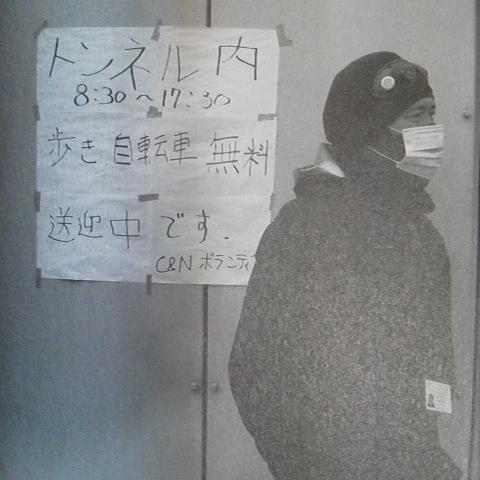 トンネル内
8:30～17:30
歩き 自転車 無料
送迎中です.
C&N ボランティ